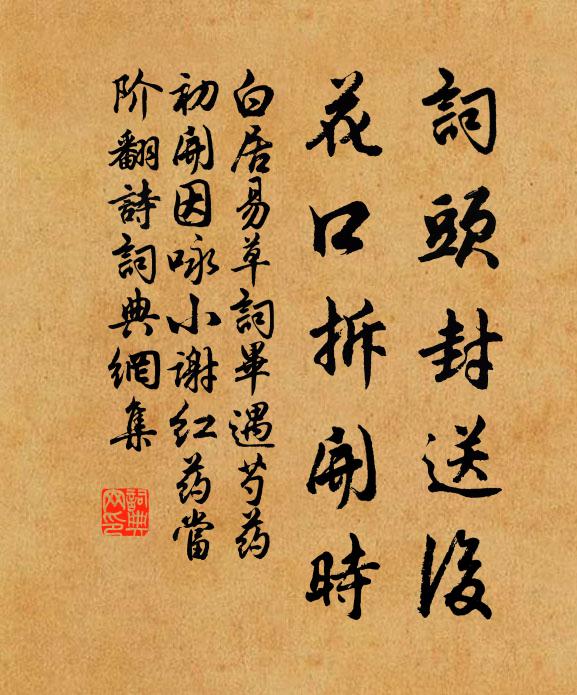 詞頭封送後
花口拆開時
白居易草詞畢遇芍药
初開因咏小謝红药當
阶翻詩詞典網集
詞典网印